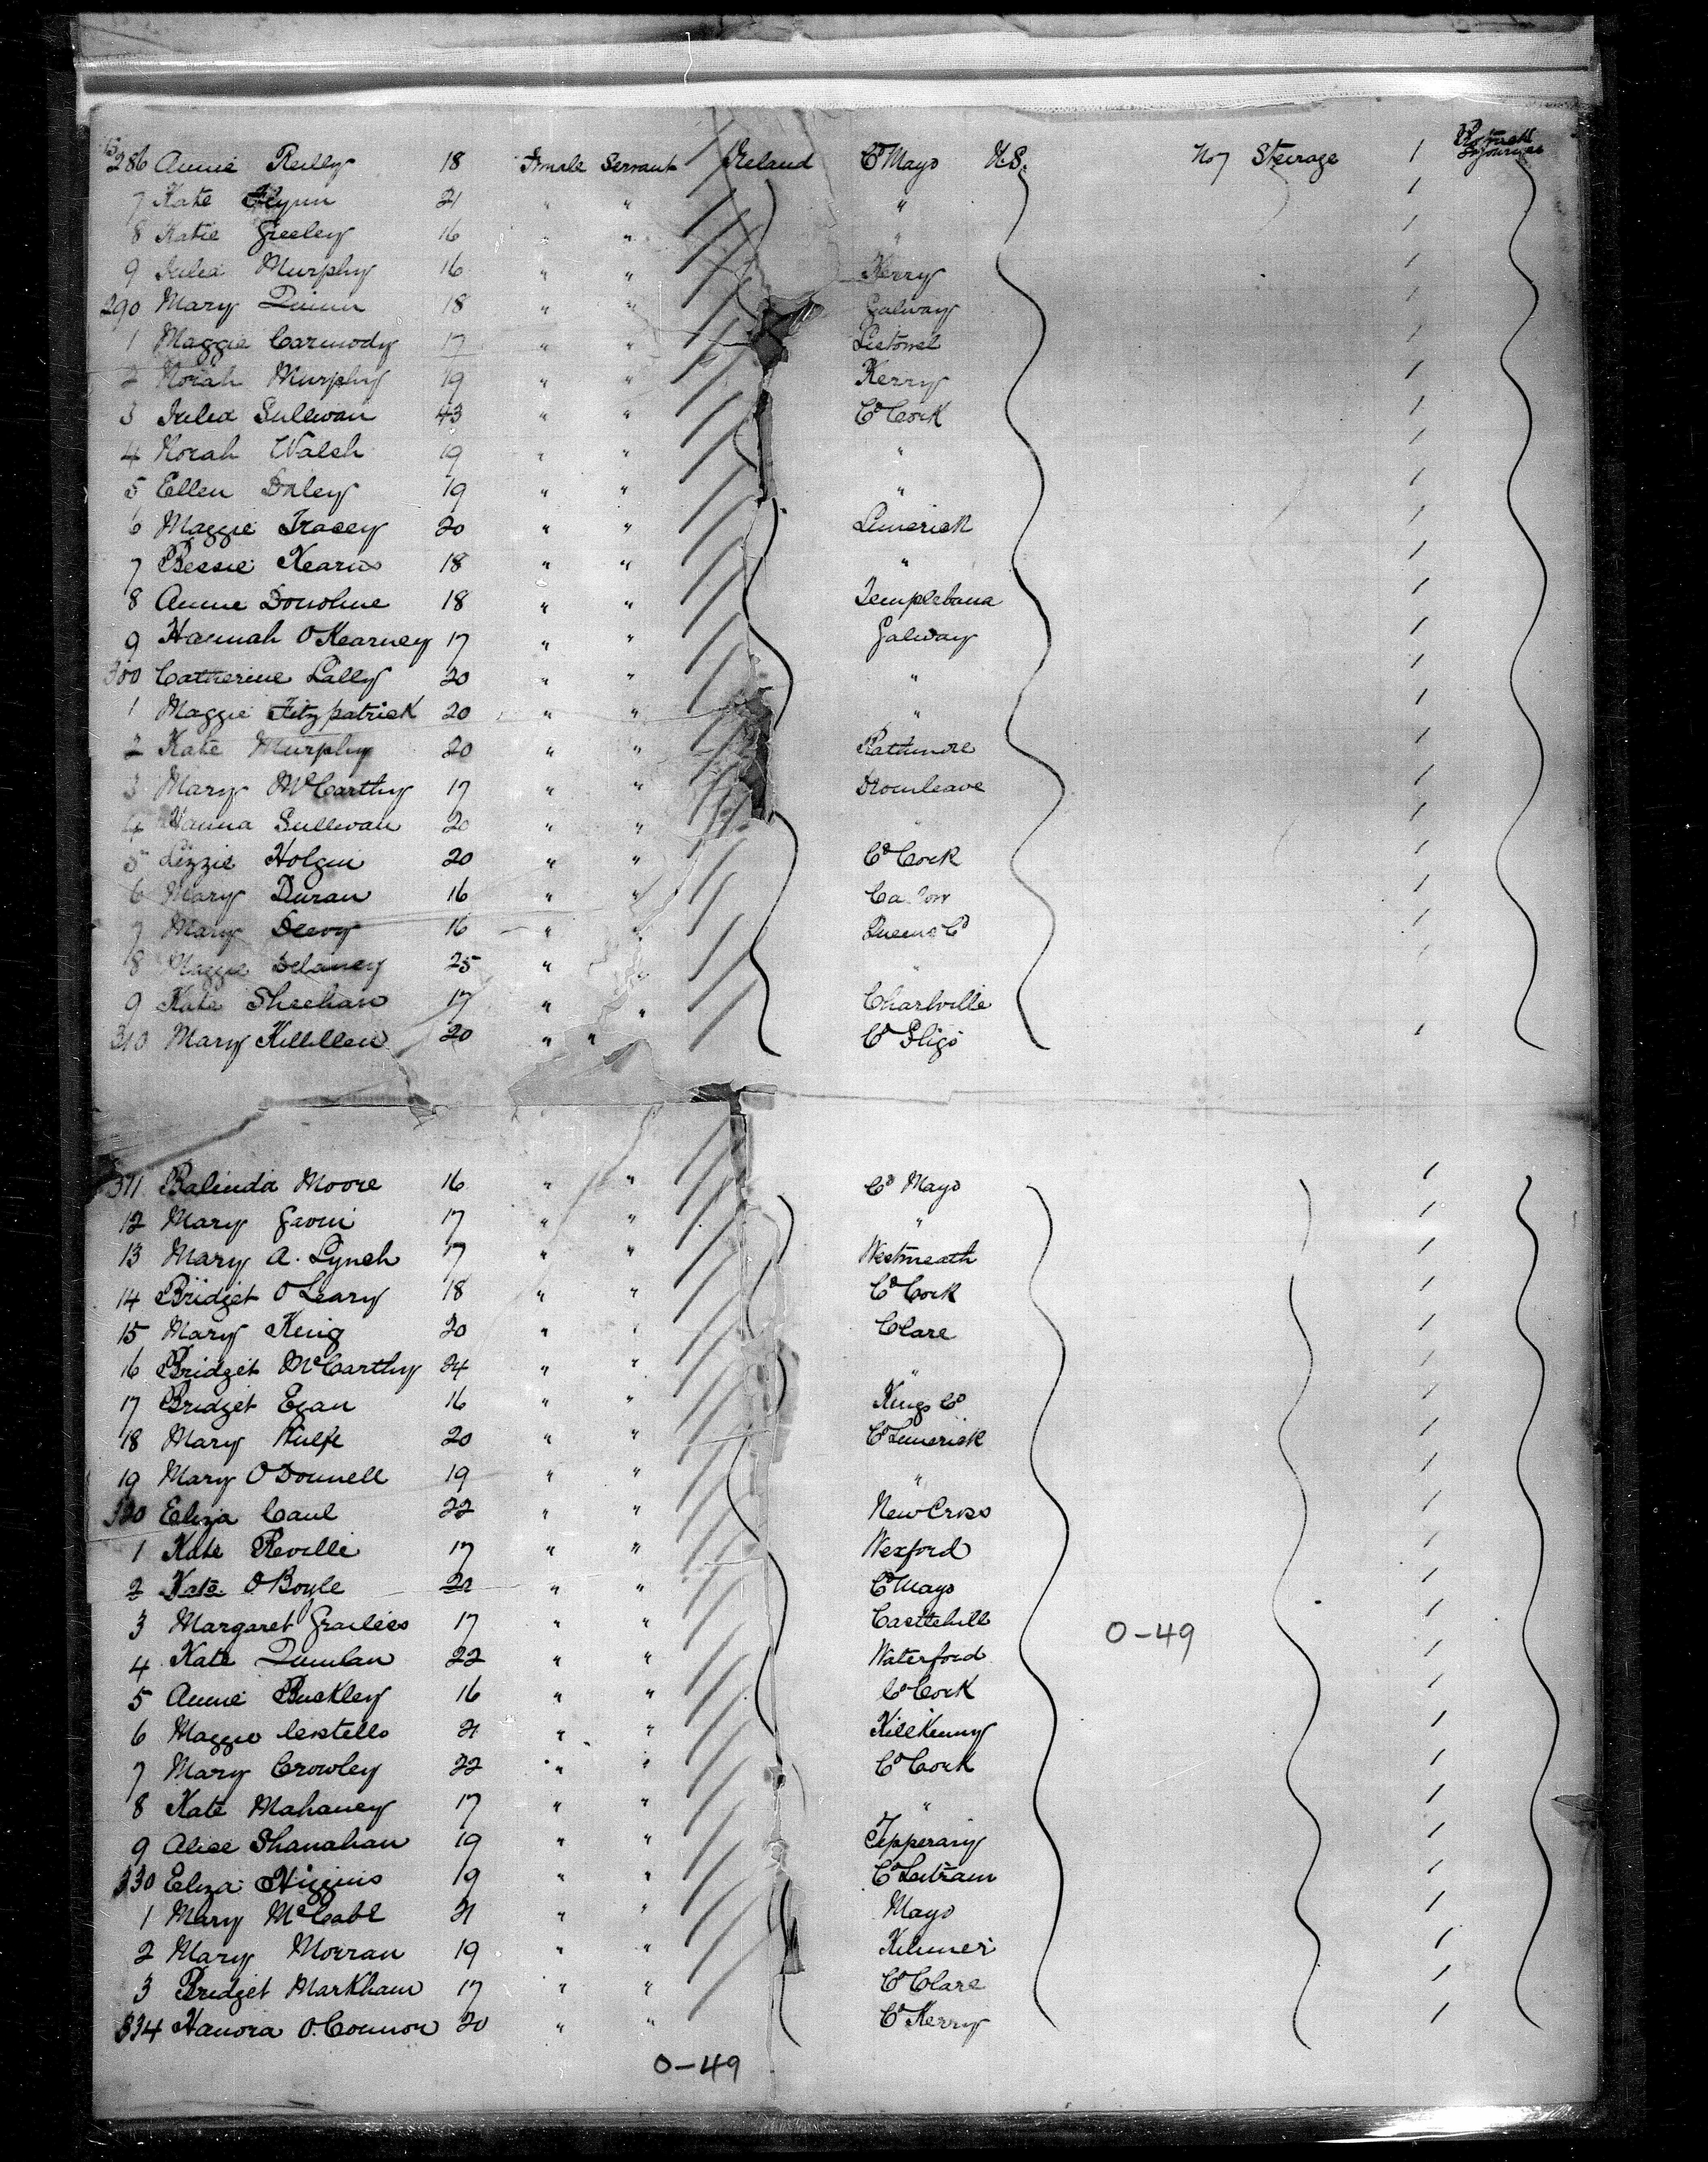 286 Annie Reilly 18 Female Servant Ireland Co Mayo U.S. No 7 Steerage 1
7 Kate Flynn 21 " " "
8 Katie Greeley 16 " " "
9 Julia Murphy 16 " " Kerry
290 Mary Quinn 18 " " Galway
1 Maggie Carmody 17 " " Listowel
2 Norah Murphy 19 " " Kerry
3 Julia Sullivan 43 " " Co Cork
4 Norah Walsh 19 " " "
5 Ellen Daley 19 " " "
6 Maggie Tracey 20 " " Limerick
7 Bessie Kearns 18 " " "
8 Annie Donohue 18 " "
9 Hannah O'Kearney 17 " " Galway
300 Catherine Lally 20 " " "
1 Maggie Fitzpatrick 20 " " "
2 Kate Murphy 20 " " Rathmore
3 Mary McCarthy 17 " " Dromleave
4 Hanna Sullivan 20 " " "
5 Lizzie 20 " " Co Cork
6 Mary Duran 16 " "
7 Mary Deevy 16 " " Queens Co
8 Maggie Delaney 25 " " "
9 Kate Sheehan 17 " " Charlville
310 Mary Killilea 20 " " Co Sligo
311 Balinda Moore 16 " " Co Mayo
12 Mary Gavin 17 " " "
13 Mary A. Lynch 17 " " Westmeath
14 Bridget O'Leary 18 " " Co Cork
15 Mary King 20 " " Clare
16 Bridget McCarthy 24 " " "
17 Bridget Egan 16 " " Kings Co
18 Mary Wulfe 20 " " Co Limerick
19 Mary O'Donnell 19 " " "
320 Eliza Caul 22 " " New Cross
1 Kate Reville 17 " " Wexford
2 Kate O'Boyle 20 " " Co Mayo
3 Margaret 17 " " Castlehill
4 Kate Quinlan 22 " " Waterford
5 Annie Buckley 16 " " Co Cork
6 Maggie Costello 21 " " Kilkenny
7 Mary Crowley 22 " " Co Cork
8 Kate Mahaney 17 " " "
9 Alice Shanahan 19 " " Tipperary
330 Eliza Higgins 19 " " Co Leitram
1 Mary McCabe 21 " " Mayo
2 Mary Morran 19 " "
3 Bridget Markham 17 " " Co Clare
334 Hanora O'Connor 20 " " Co Kerry
0-49
0-49